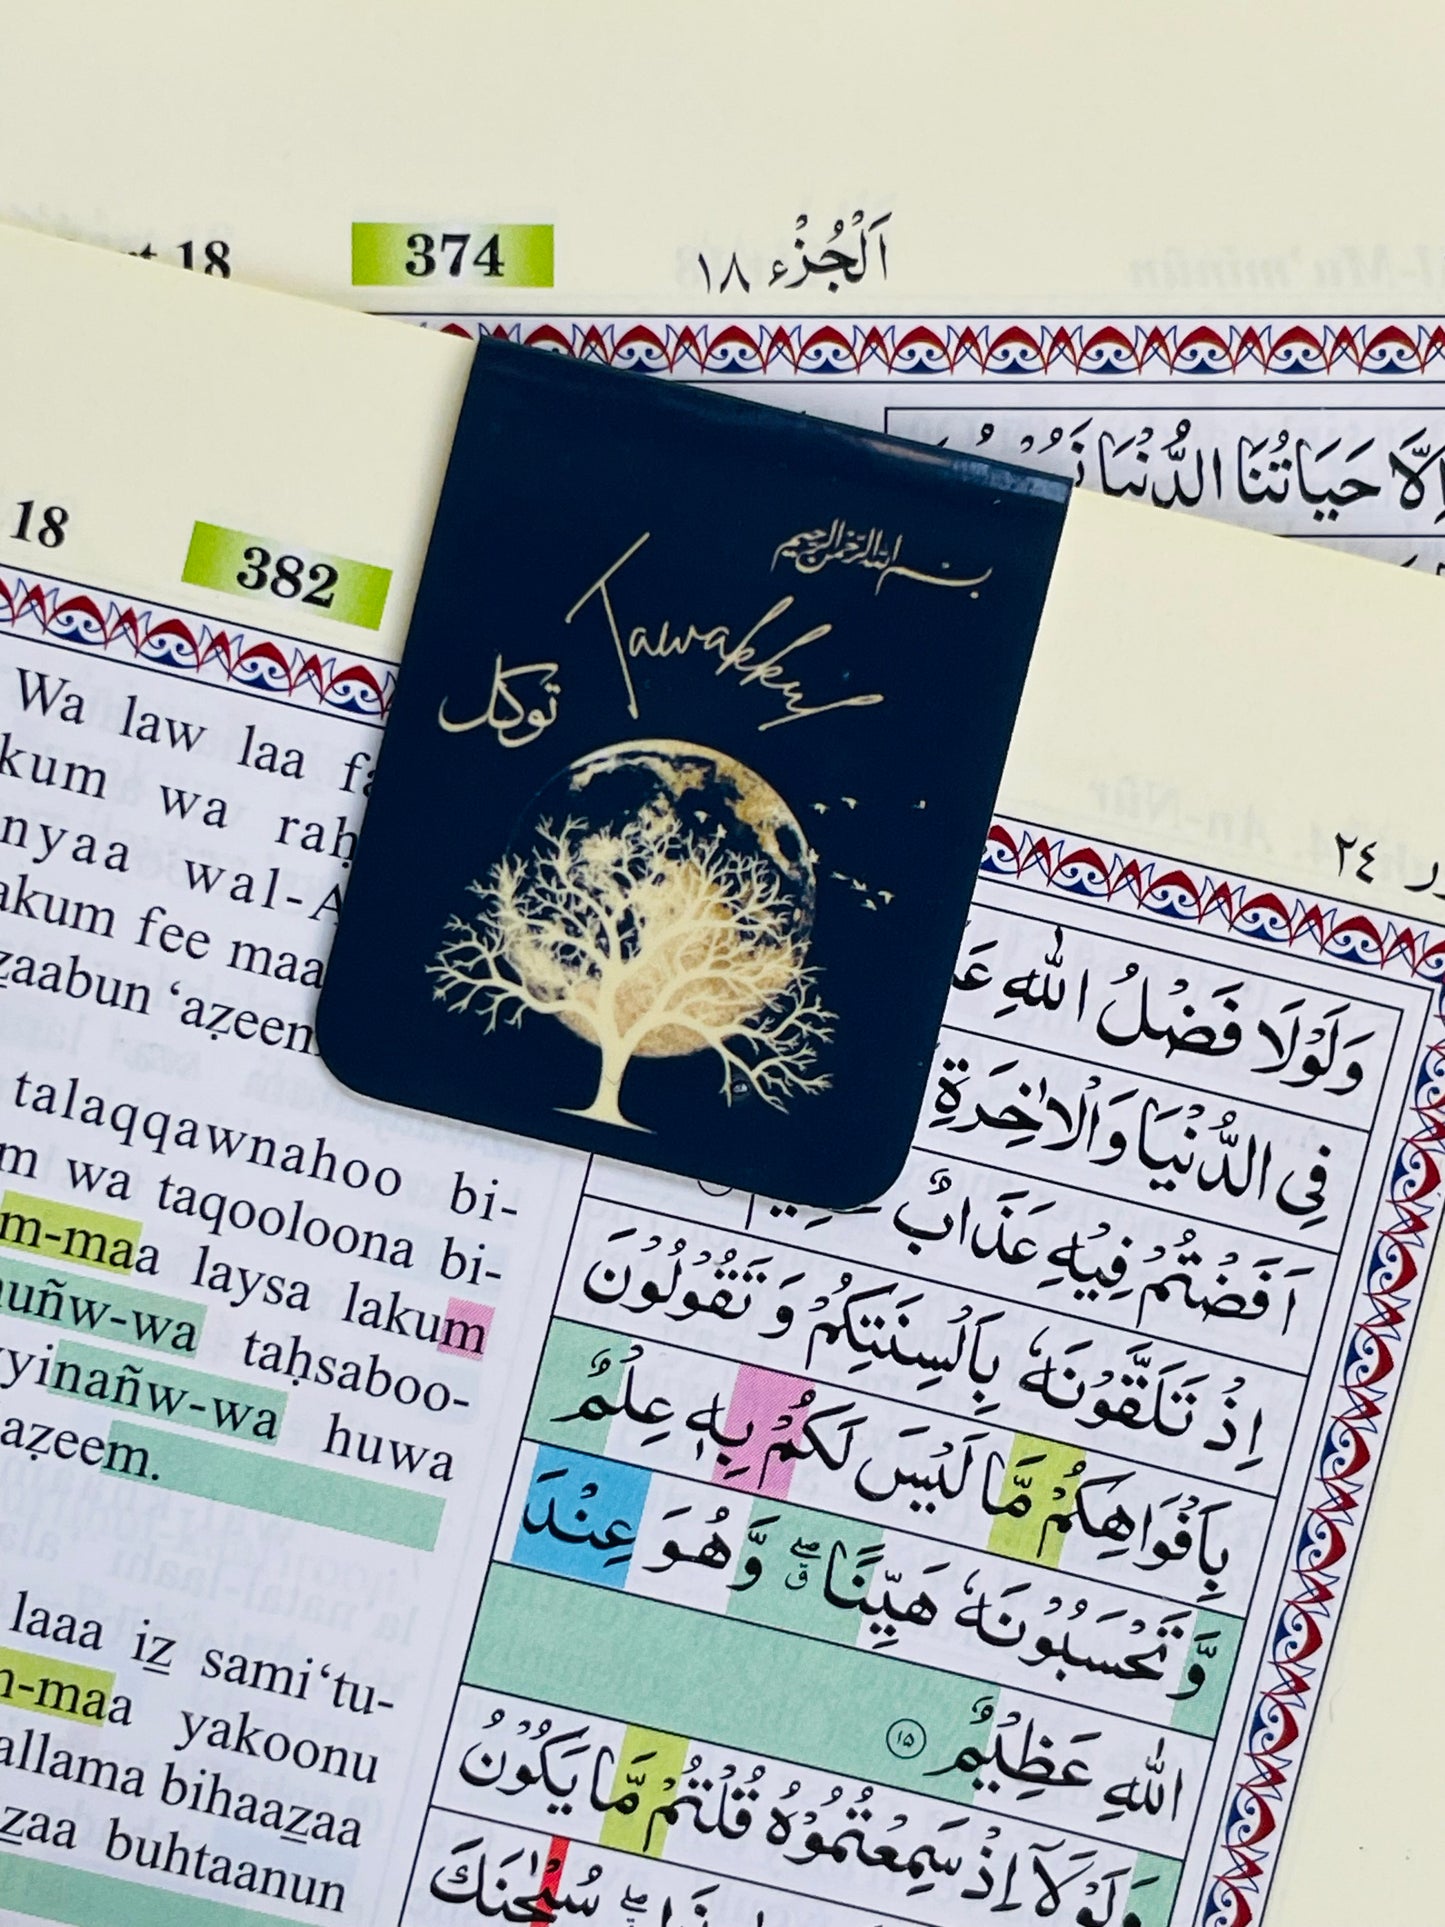 18
374
اَلْجُزْء ١٨
اِلَّا حَيَاتُنَا الدُّنْيَا
18
382
٢٤
بسم الله الرحمن الرحيم
Tawakkul
توكل
Wa law laa
kum wa
nyaa wal-
akum fee maa
zaabun ‘aẓeem
talaqqawnahoo bi-
m wa taqooloona bi-
m-maa laysa lakum
uñw-wa taḥsaboo-
yyinañw-wa huwa
aẓeem.
laaa iz̲ sami‘tu-
m-maa yakoonu
allama bihaaz̲aa
z̲aa buhtaanun
وَلَوْلَا فَضْلُ اللّٰهِ
فِى الدُّنْيَا وَالْاٰخِرَةِ
اَفَضْتُمْ فِيْهِ عَذَابٌ
اِذْ تَلَقَّوْنَهٗ بِاَلْسِنَتِكُمْ وَ تَقُوْلُوْنَ
بِاَفْوَاهِكُمْ مَّا لَيْسَ لَكُمْ بِهٖ عِلْمٌ
وَّ تَحْسَبُوْنَهٗ هَيِّنًا ۖۗ وَّ هُوَ عِنْدَ
اللّٰهِ عَظِيْمٌ ١٥
وَلَوْلَآ اِذْ سَمِعْتُمُوْهُ قُلْتُمْ مَّا يَكُوْنُ
سُبْحٰنَكَ